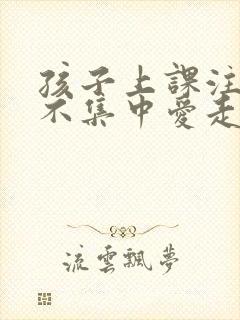 孩子上課注
不集中愛走
流雲飄夢